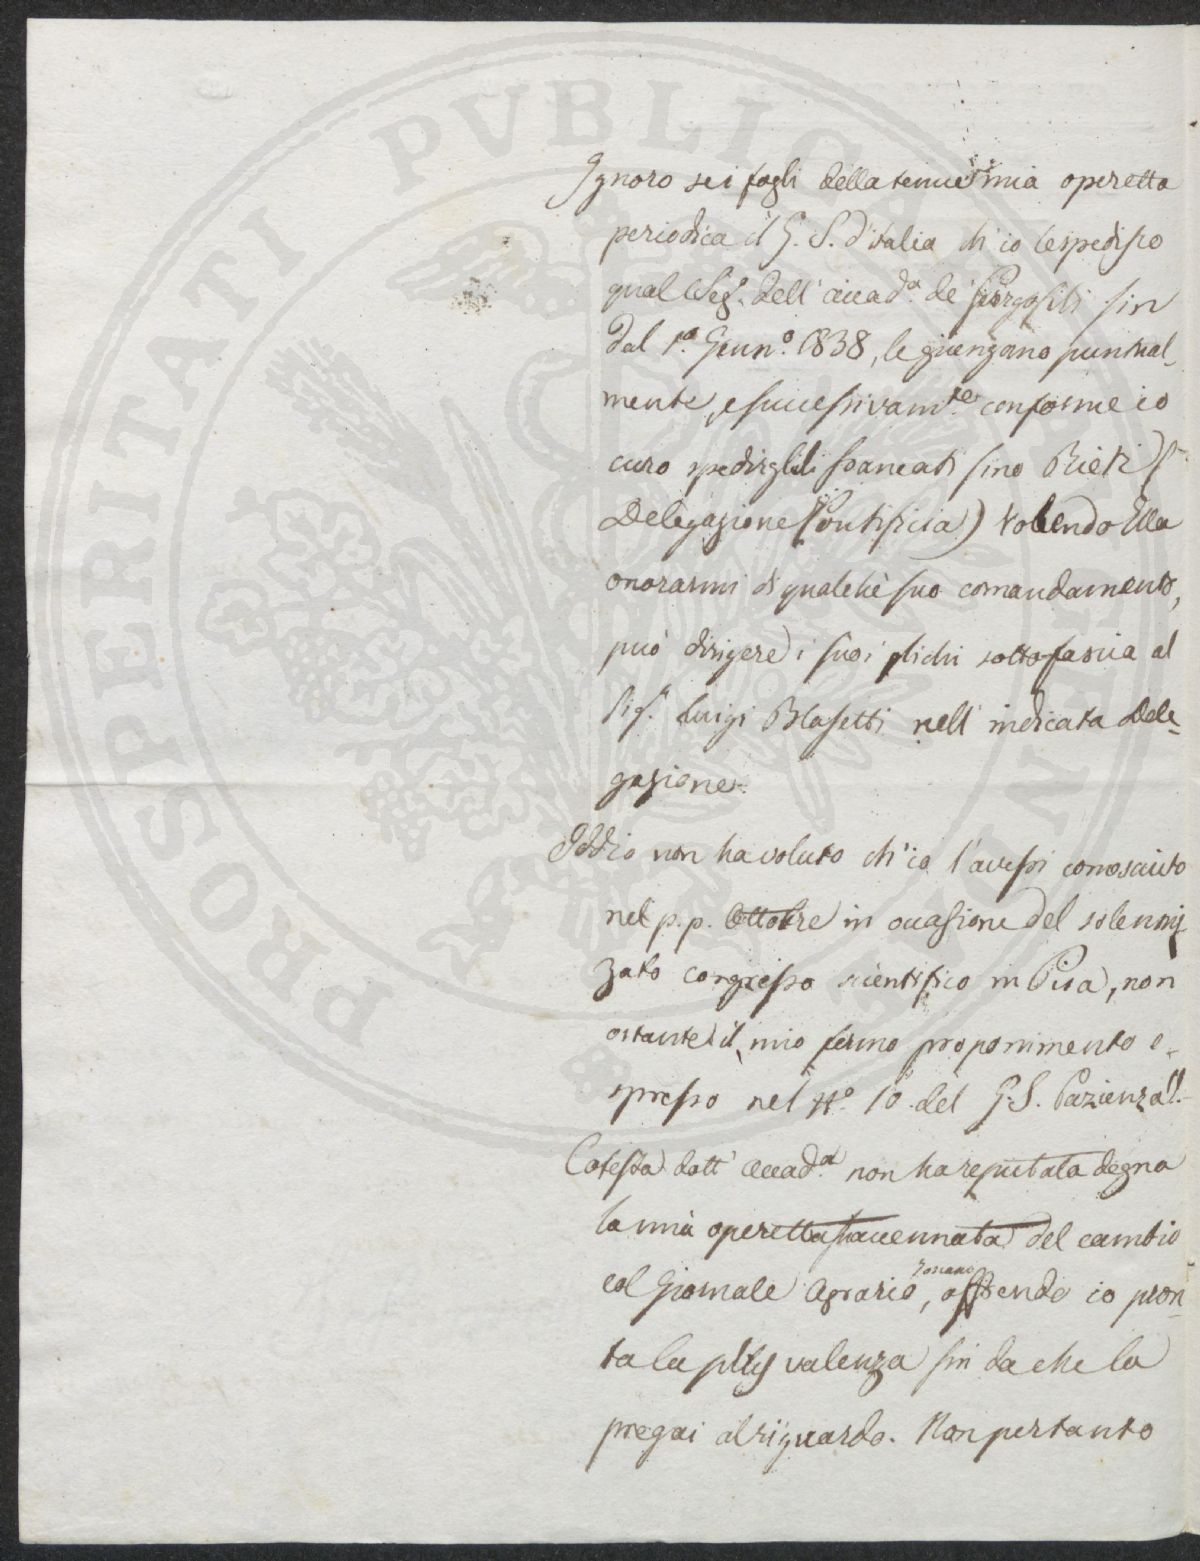 PROSPERITATI PUBLICAE
Ignoro se i fogli della tenue mia operetta
periodica il G. S. d'Italia ch'io le spedisco
qual Seg.o dell'Accad.a de'
sin
dal 1.o Genn.o 1838, le giungano puntual-
mente, e successivam.te conforme io
curo spedirglieli francati sino Rieti (
Delegazione Pontificia) Volendo Ella
onorarmi di qualche suo comandamento,
può dirigere i suoi plichi sotto fascia al
Sig.r Luigi Blasetti nell'indicata Dele-
gazione.
Iddio non ha voluto ch'io l'avessi conosciuto
nel p.p. Ottobre in occasione del solenniz-
zato congresso scientifico in Pisa, non
ostante il mio fermo proponimento e-
spresso nel N.o 10 del G. S. Pazienza!!
Cotesta dott' Accad.a non ha reputata degna
la mia operetta accennata del cambio
col Giornale Agrario Toscano, offrendo io pron-
ta la plus valenza sin da che la
pregai al riguardo. Non pertanto